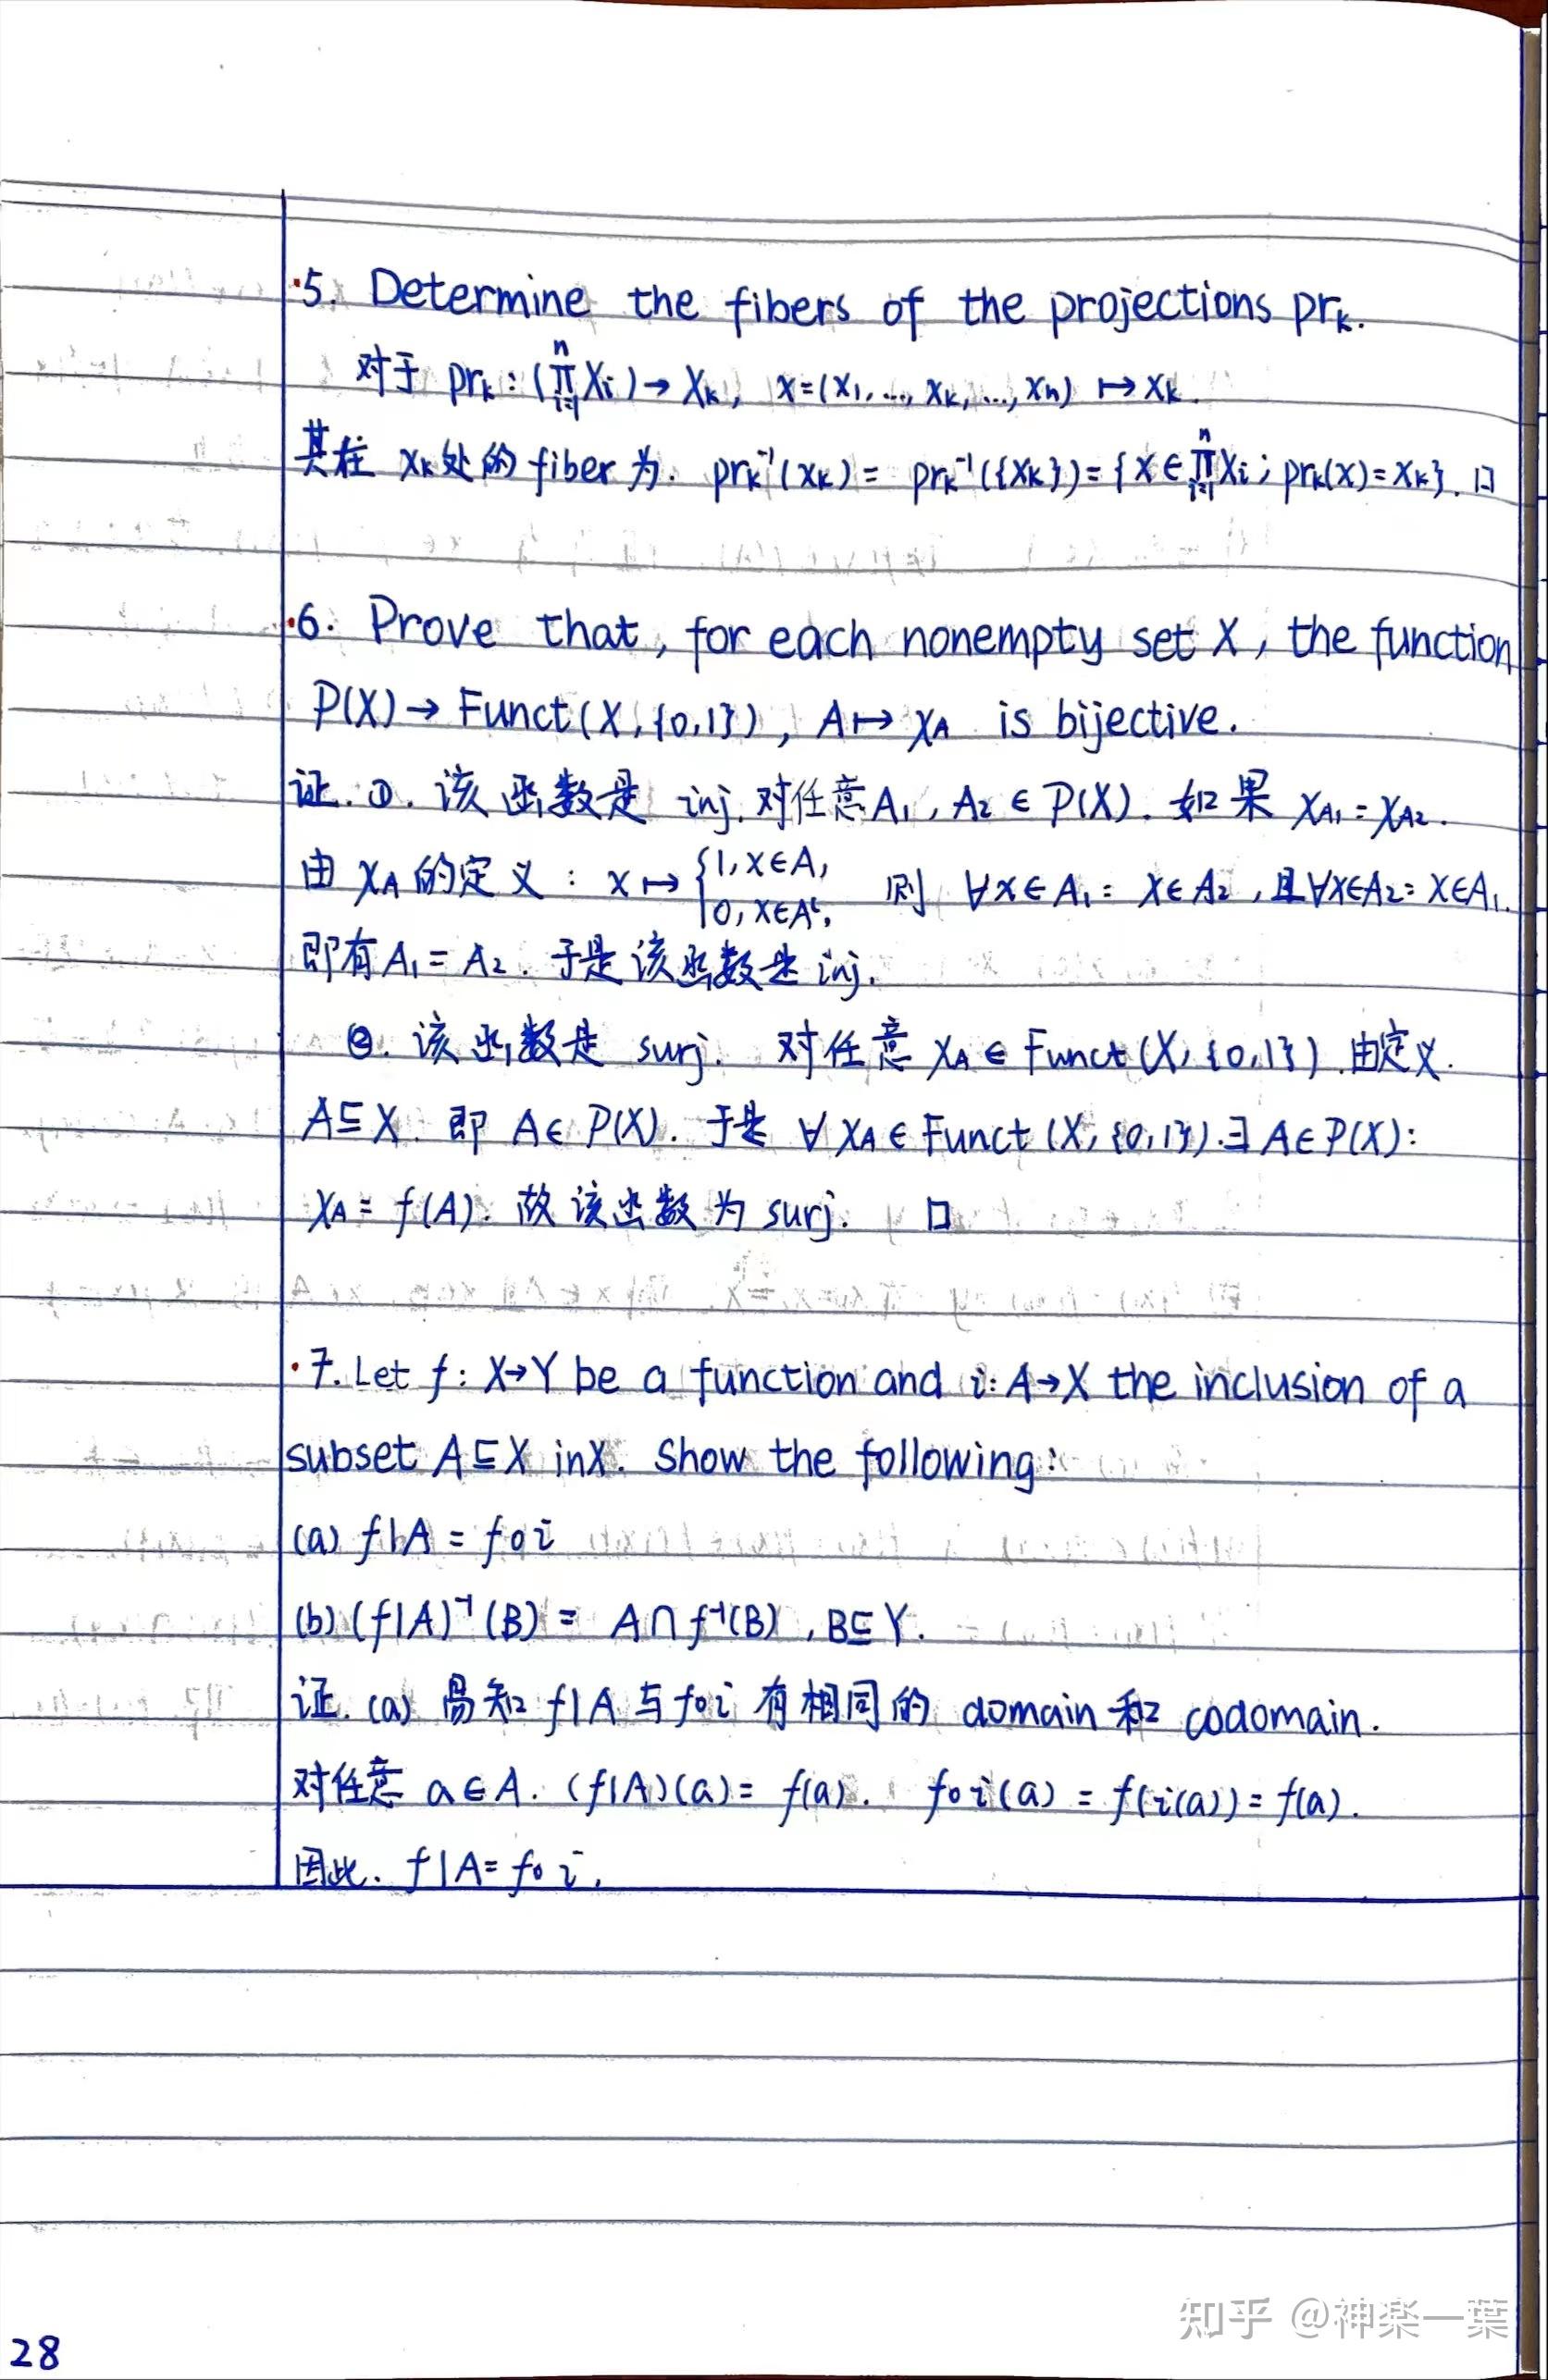 ·5. Determine the fibers of the projections prₖ.
对于 prₖ: (∏ⁿᵢ₌₁Xᵢ)→Xₖ, x=(x₁,…,xₖ,…,xₙ) ↦xₖ.
其在 xₖ处的fiber为. prₖ⁻¹(xₖ)= prₖ⁻¹({xₖ})={x∈∏ⁿᵢ₌₁Xᵢ; prₖ(x)=xₖ}. □
·6. Prove that, for each nonempty set X, the function
P(X)→Funct(X,{0,1}), A↦χ_A is bijective.
证. ①. 该函数是 inj. 对任意A₁, A₂∈P(X). 如果 χ_A₁=χ_A₂.
由 χ_A的定义: x↦{1, x∈A, 0, x∈Aᶜ, 则 ∀x∈A₁: x∈A₂, 且∀x∈A₂: x∈A₁.
即有A₁=A₂. 于是该函数是inj.
②. 该函数是 surj. 对任意χ_A∈Funct(X,{0,1}). 由定义.
A⊆X. 即 A∈P(X). 于是 ∀χ_A∈Funct(X,{0,1}).∃A∈P(X):
χ_A=f(A). 故该函数为surj. □
·7. Let f: X→Y be a function and i: A→X the inclusion of a
subset A⊆X in X. Show the following:
(a) f|A = f∘i
(b) (f|A)⁻¹(B) = A∩f⁻¹(B), B⊆Y.
证. (a) 易知 f|A与f∘i有相同的 domain和codomain.
对任意 a∈A. (f|A)(a)= f(a). f∘i(a) = f(i(a))=f(a).
因此. f|A=f∘i.
28
知乎 @神楽一葉